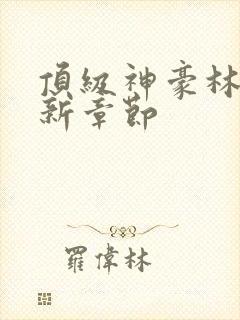 頂級神豪林
新章節
羅偉林